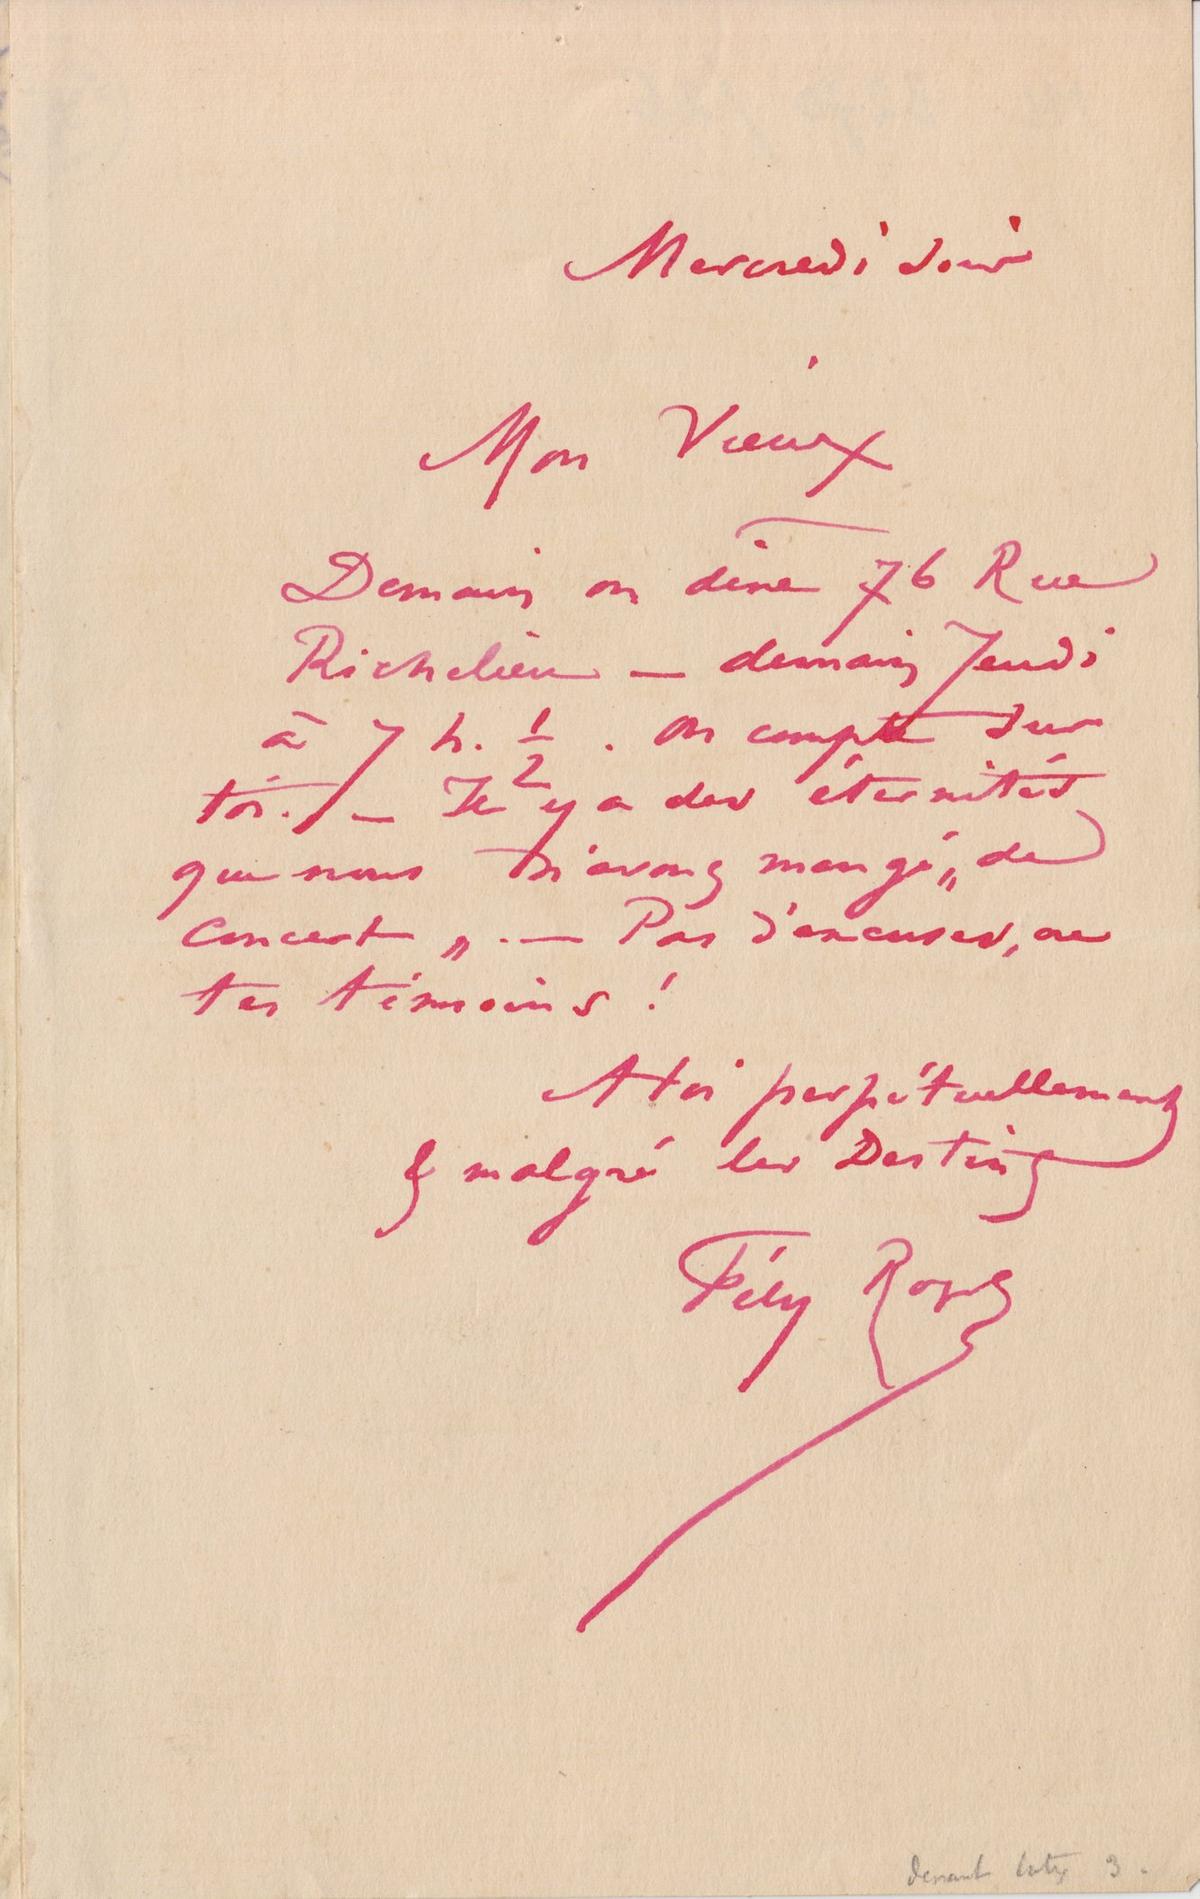 Mercredi soir
Mon Vieux
Demain on dine 76 Rue
Richelieu — demain Jeudi
à 7 h. 1/2 . On compte sur
toi. — Il y a des éternités
que nous n'avons mangé „ de
concert „ . — Pas d'excuses, ou
tes témoins !
A toi perpétuellement
& malgré les Destins
Fély Rops
3 .